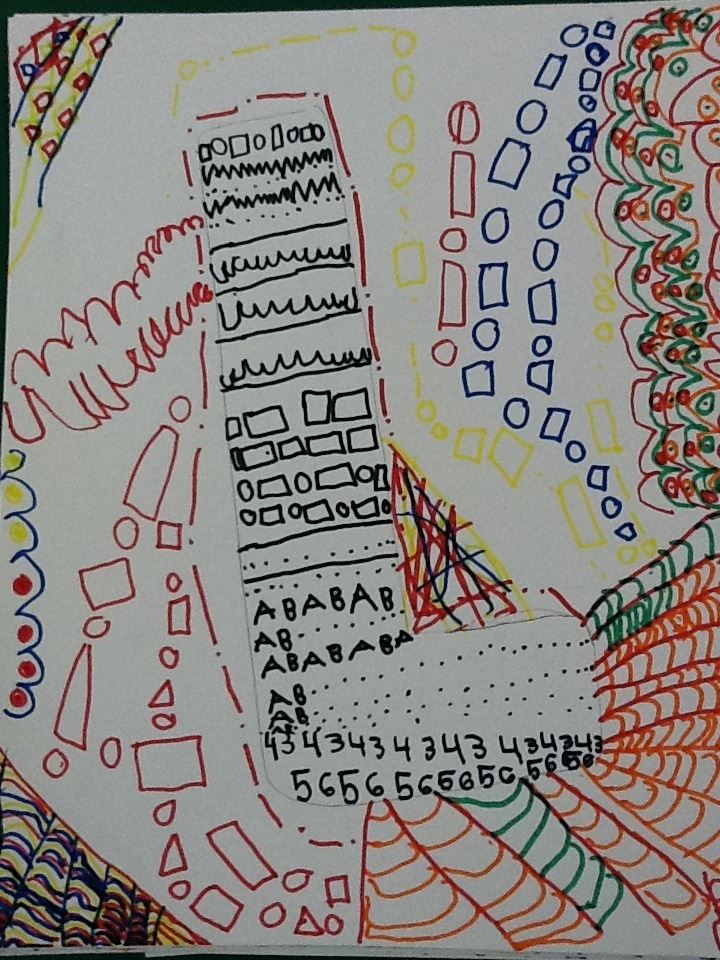 ABABAB
AB
ABABABA
AB
AB
43 43 43 4 3 43 43 43 43
5656 56 56 56 56 56